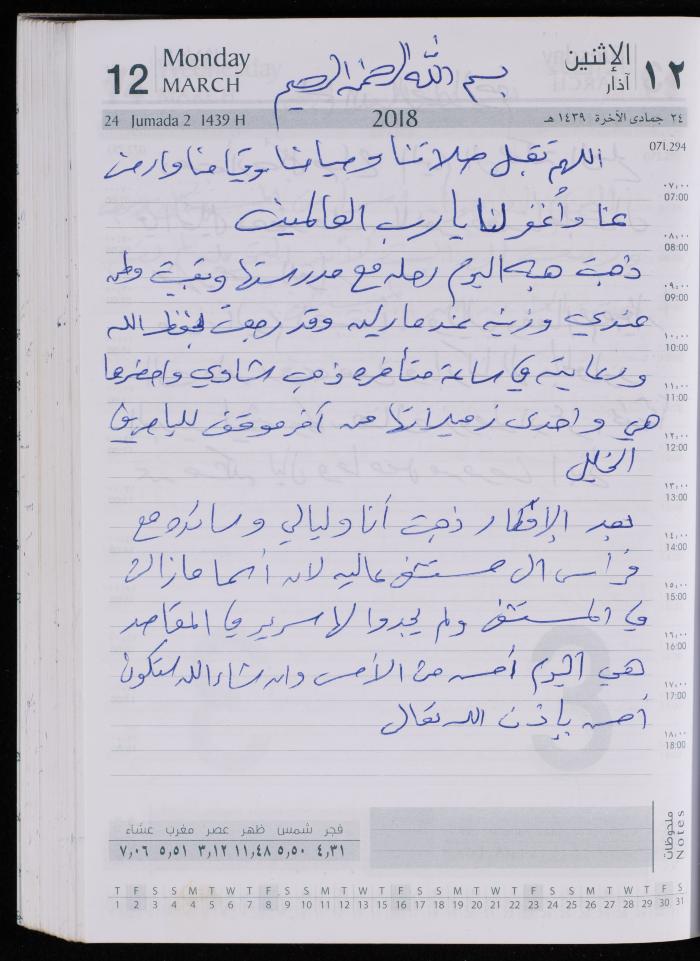 12 Monday MARCH
بسم الله الرحمن الرحيم
الإثنين آذار ١٢
24 Jumada 2 1439 H
2018
٢٤ جمادى الآخرة ١٤٣٩ هـ
071.294
اللهم تقبل صلاتنا وصيامنا وقيامنا وارض
عنا وأغفر لنا يا رب العالمين
ذهبت هبه اليوم رحله مع مدرستها وبقيت
عندي وزينه عند ماريه وقد رجعت بحفظ الله
ورعايته في ساعة متأخره ذهب شادي واحضرها
هي واحدى زميلاتها من آخر موقف للباص في
الخليل
بعد الإفطار ذهبت أنا وليالي وسائده مع
فراس ال مستشفى عاليه لان أسما مازالت
في المستشفى ولم يجدوا لها سرير في المقاصد
هي اليوم أحسن من الأمس وان شاء الله ستكون
أحسن بإذن الله تعالى
٠٧:٠٠
07:00
٠٨:٠٠
08:00
٠٩:٠٠
09:00
١٠:٠٠
10:00
١١:٠٠
11:00
١٢:٠٠
12:00
١٣:٠٠
13:00
١٤:٠٠
14:00
١٥:٠٠
15:00
١٦:٠٠
16:00
١٧:٠٠
17:00
١٨:٠٠
18:00
فجر شمس ظهر عصر مغرب عشاء
٤,٣١ ٥,٥٠ ١١,٤٨ ٣,١٢ ٥,٥١ ٧,٠٦
ملحوظات
Notes
T F S S M T W T F S S M T W T F S S M T W T F S S M T W T F S
1 2 3 4 5 6 7 8 9 10 11 12 13 14 15 16 17 18 19 20 21 22 23 24 25 26 27 28 29 30 31